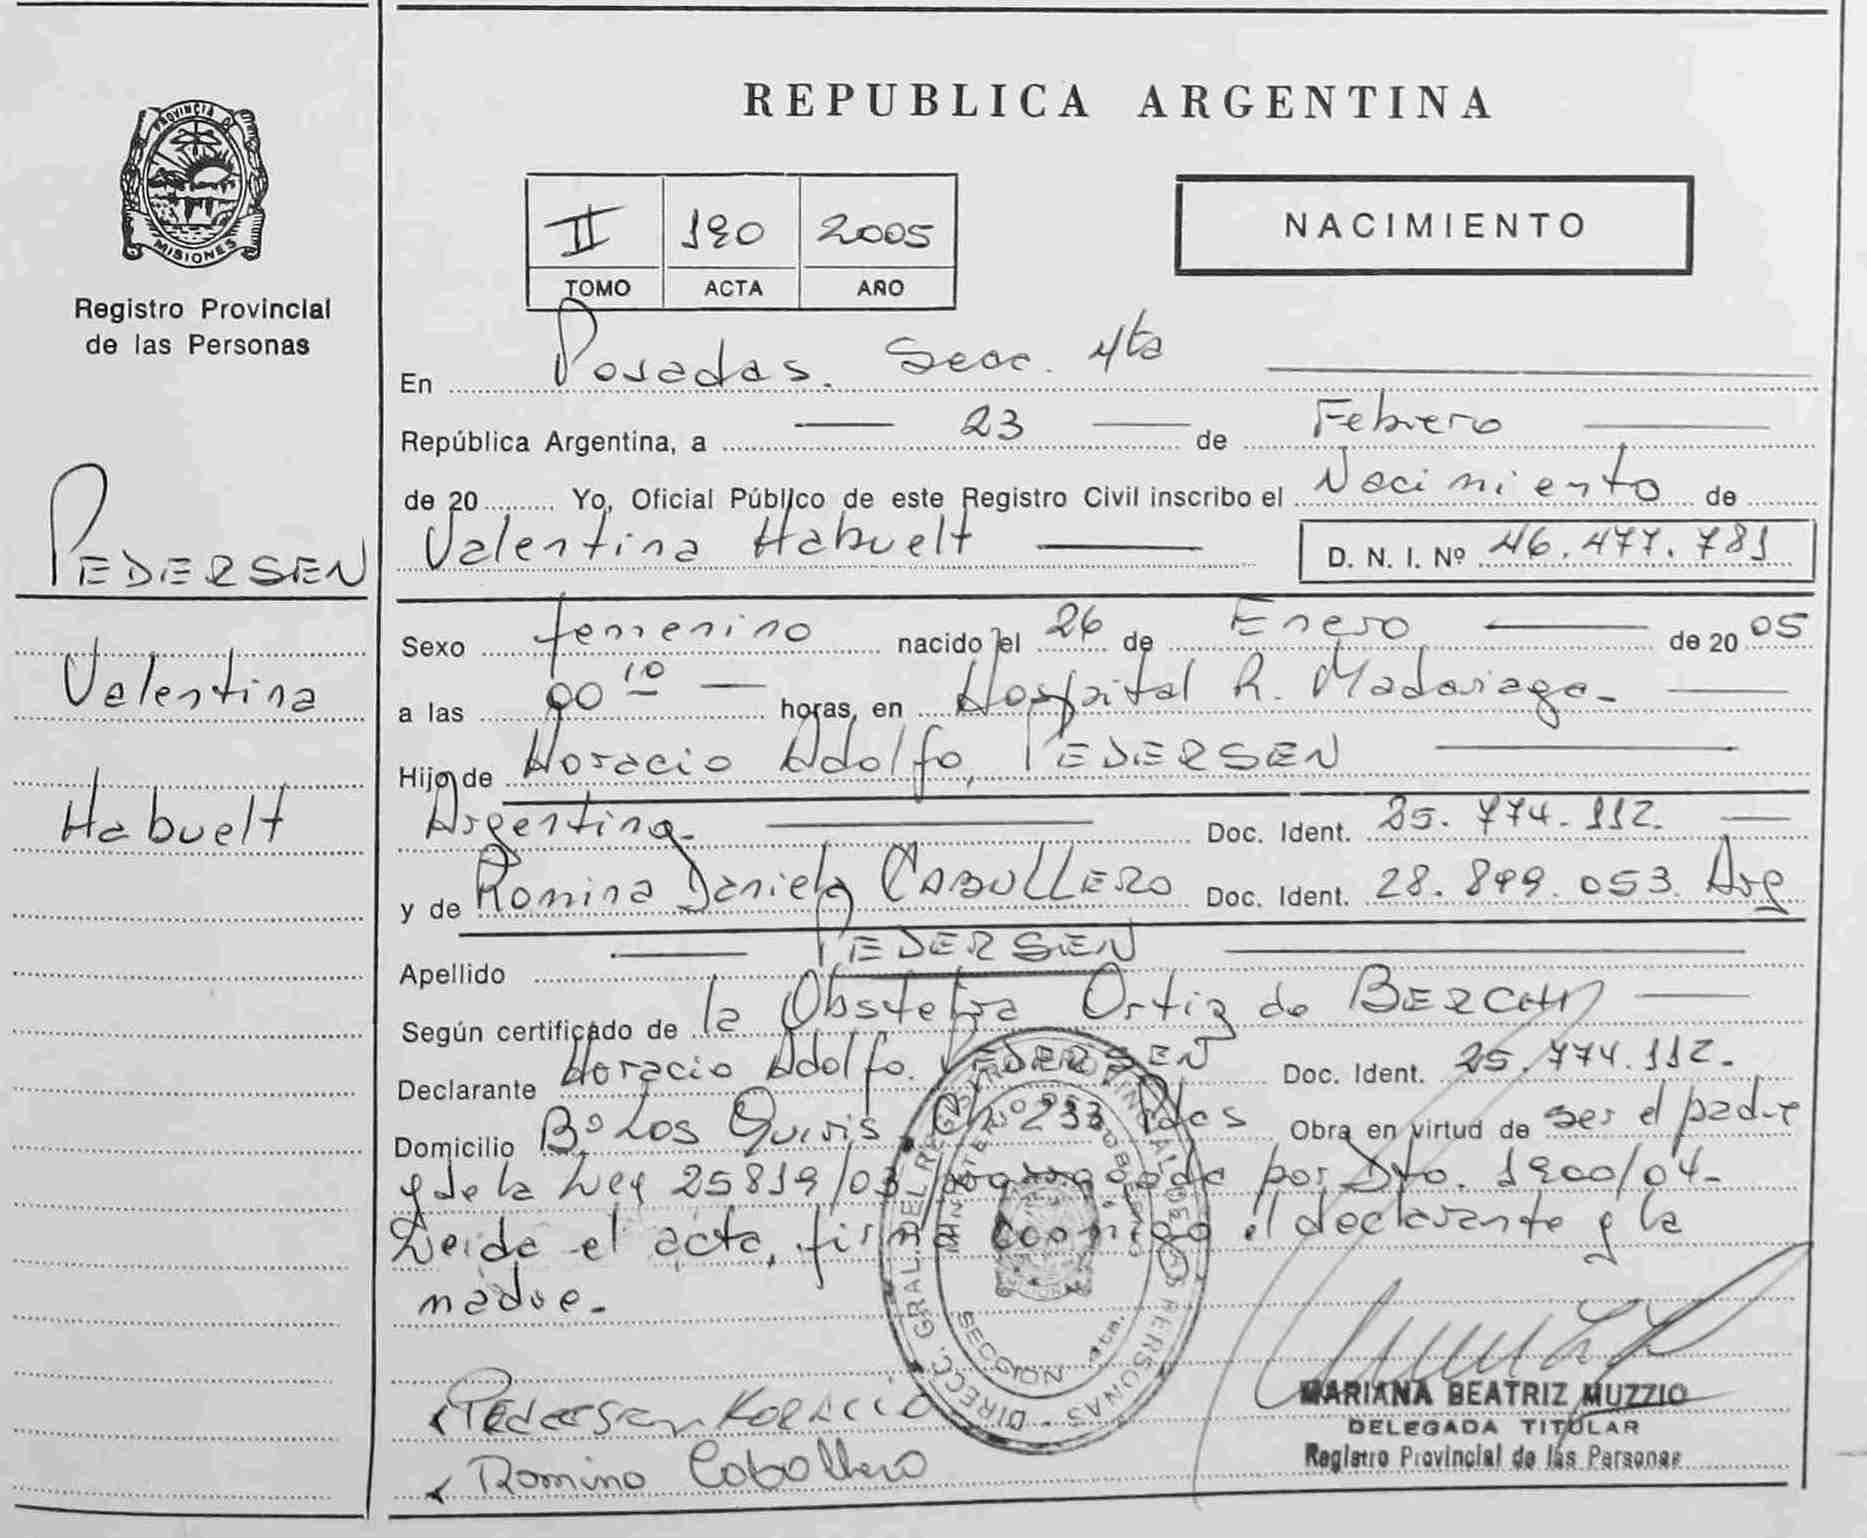 PROVINCIA DE
MISIONES
Registro Provincial
de las Personas
PEDERSEN
Valentina
Habuelt
REPUBLICA ARGENTINA
II 190 2005
TOMO ACTA AÑO
NACIMIENTO
En Posadas. Secc. 4ta
República Argentina, a 23 de Febrero
de 20 Yo, Oficial Público de este Registro Civil inscribo el Nacimiento de
Valentina Habuelt D. N. I. Nº 46.477.781
Sexo femenino nacido el 26 de Enero de 20 05
a las 00 10 horas, en Hospital R. Madariaga-
Hijo de Horacio Adolfo, PEDERSEN
Argentina- Doc. Ident. 25.774.112.
y de Romina Daniela CABALLERO Doc. Ident. 28.899.053. Arg
Apellido PEDERSEN
Según certificado de la Obstetra Ortiz de
Declarante Horacio Adolfo. PEDERSEN Doc. Ident. 25.774.112-
Domicilio Bº Los Ch Nº 233 Pdas Obra en virtud de ser el padre
y de la Ley 25819/03 prorrogada por Dto. 1900/04-
Leida el acta, firma conmigo el declarante y la
madre-
DIRECC. GRAL. DEL REGISTRO PROVINCIAL DE LAS PERSONAS
MINISTERIO DE GOBIERNO
SECCION 4ta.
Pedersen Horacio
Romina Caballero
MARIANA BEATRIZ MUZZIO
DELEGADA TITULAR
Registro Provincial de las Personas